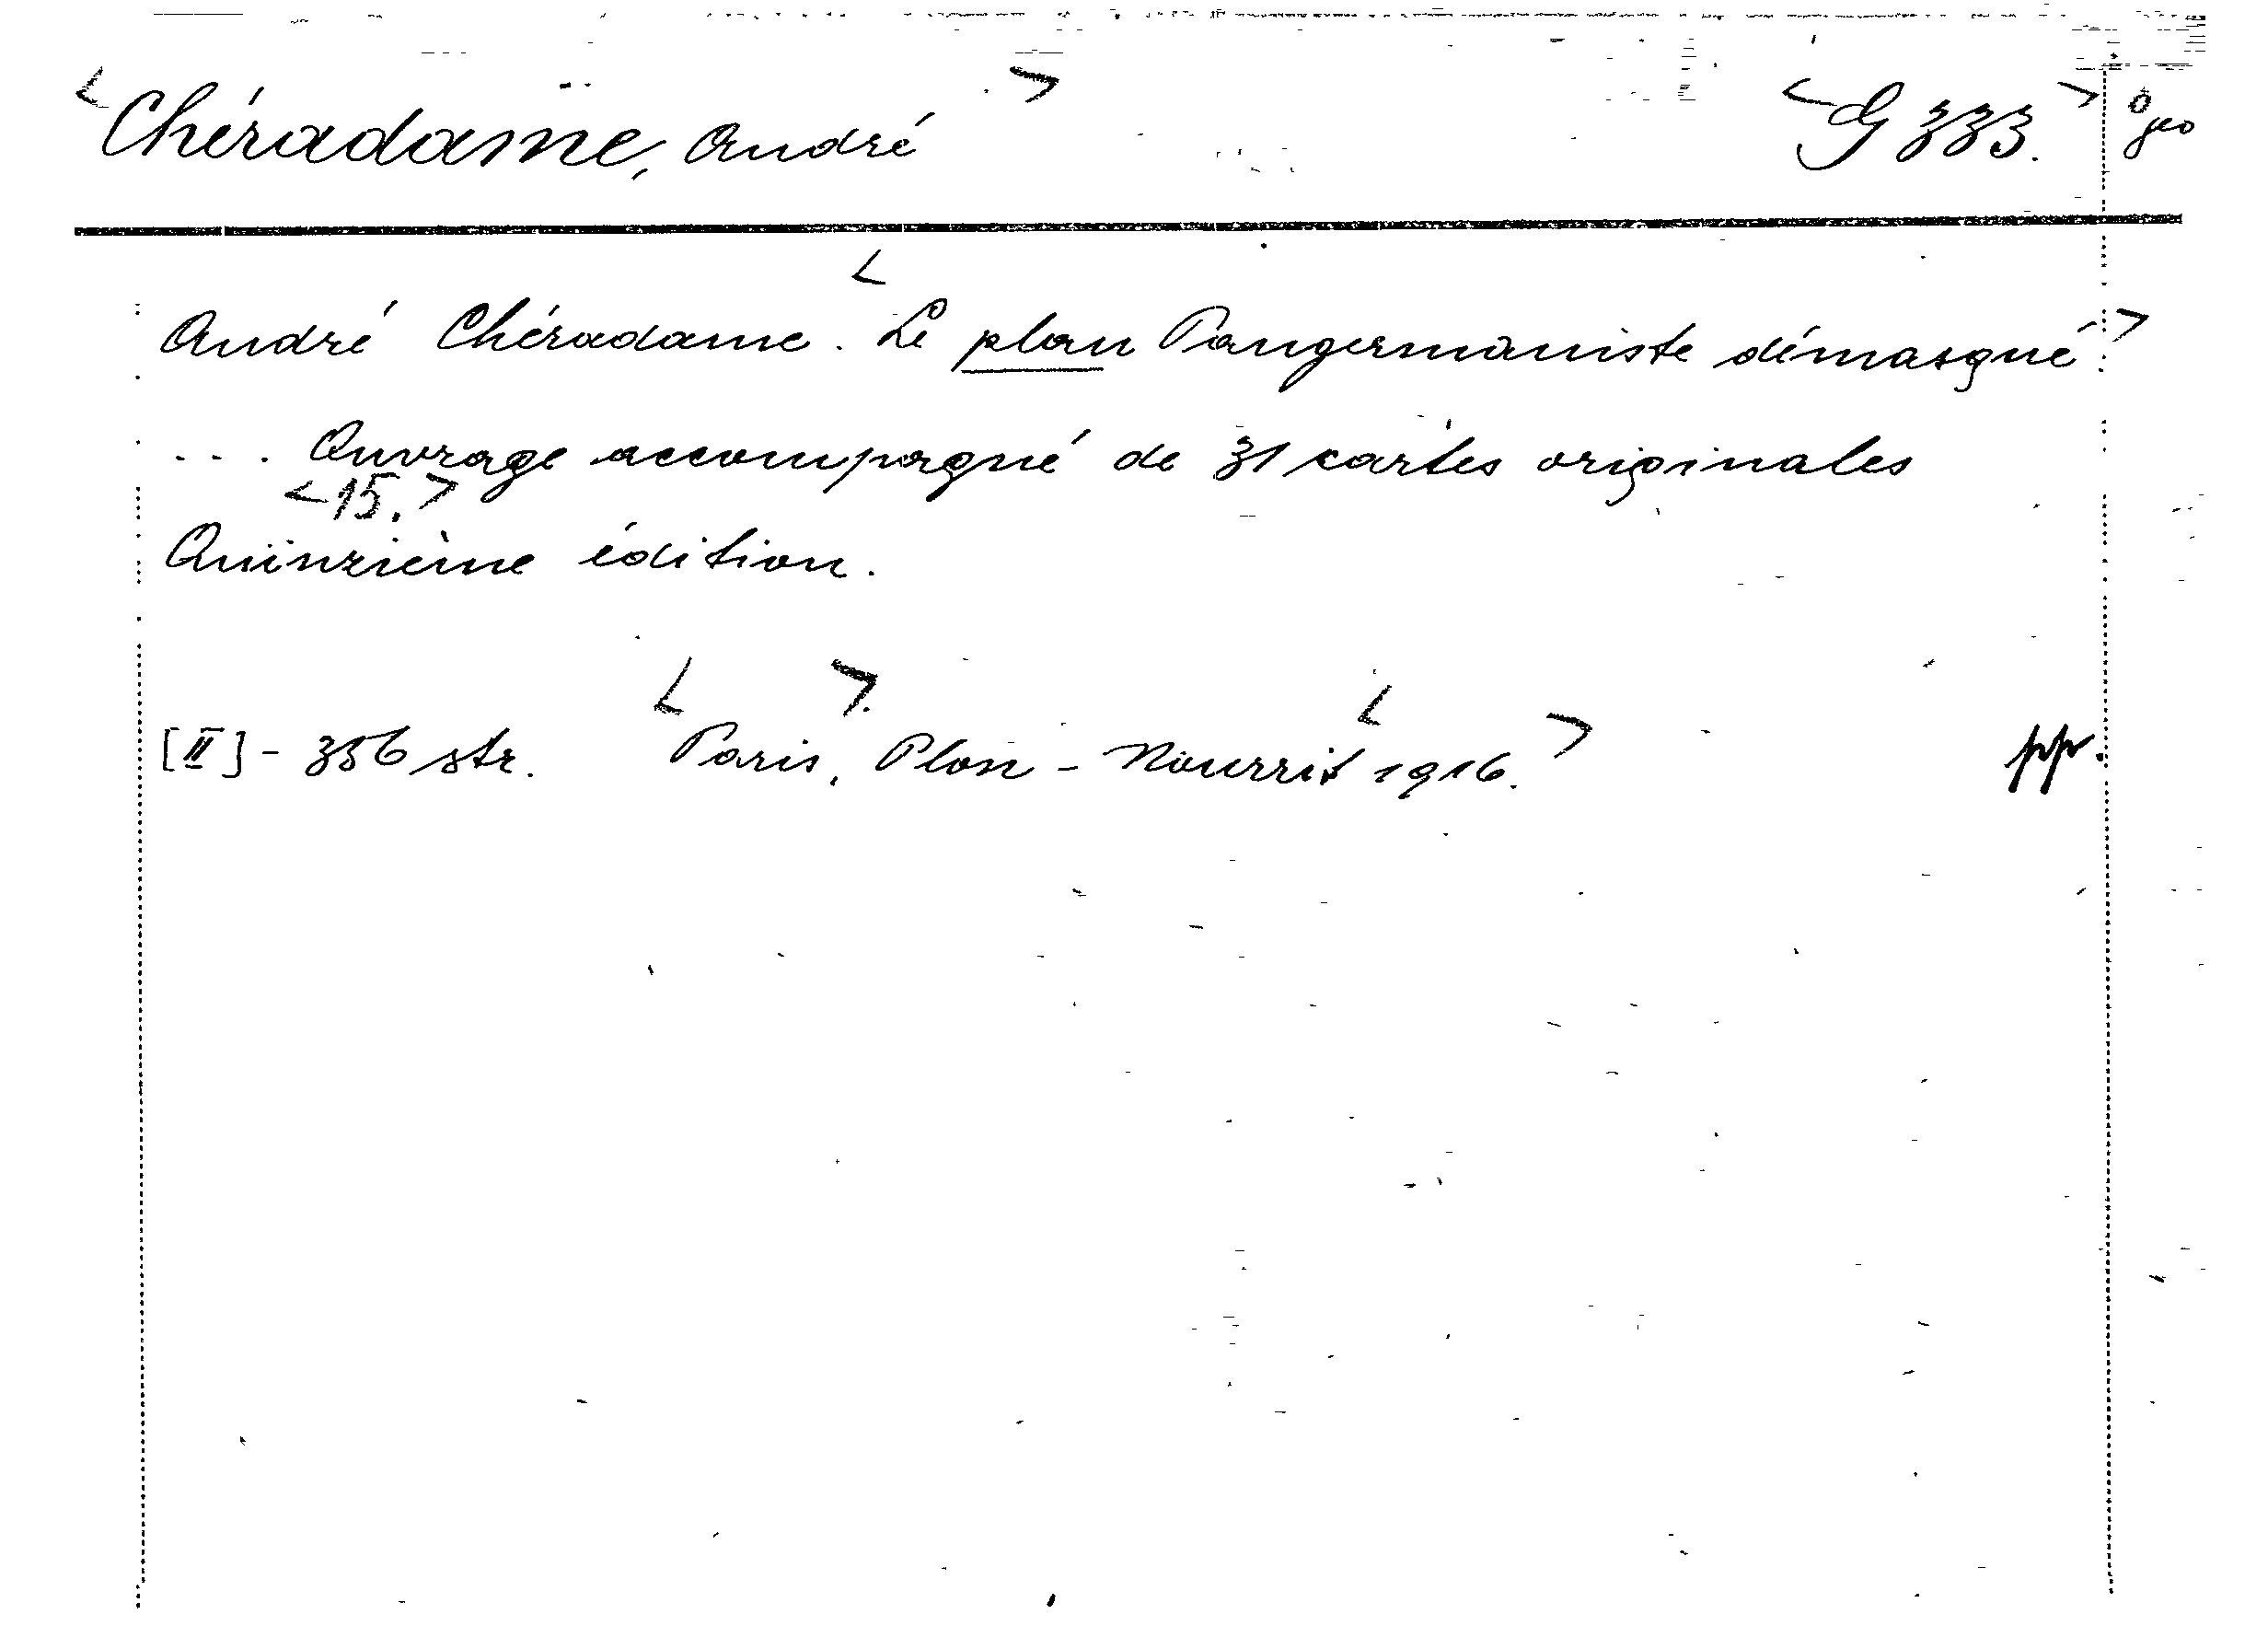 <Chéradame, André> <G 333.> geo
André Chéradame. <Le plan Pangermaniste démasqué.>
... Ouvrage accompagné de 31 cartes originales
<15.>
Quinzième édition.
[II] - 356 str. <Paris>, Plon - Nourrit <1916.> pp.